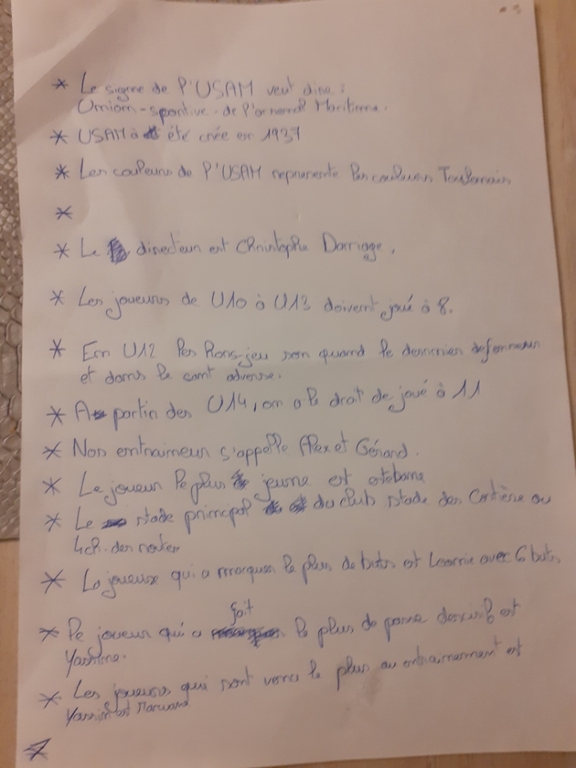 * Le signe de l'USAM veut dire :
Union-sportive-de l'arsenal Maritime.
* USAM à été crée en 1937
* Les couleurs de l'USAM represente les couleurs Toulonnais
*
* Le directeur est Christophe Dorriage.
* Les joueurs de U10 à U13 doivent joué à 8.
* En U12 les hors-jeu son quand le dernier defenseur
et dans le cant adverse.
* A partir des U14, on a le droit de joué à 11
* Nos entraineur s'appelle Alex et Gérard.
* Le joueur le plus jeune est estebane
* Le stade principal du club stade des Cortière ou
4ch. des routes
* La joueuse qui a marquer le plus de buts est avec 6 buts
* Le joueur qui a fait le plus de passe decisif est
* Les joueurs qui sont venu le plus au entrainement est
Marwane
*